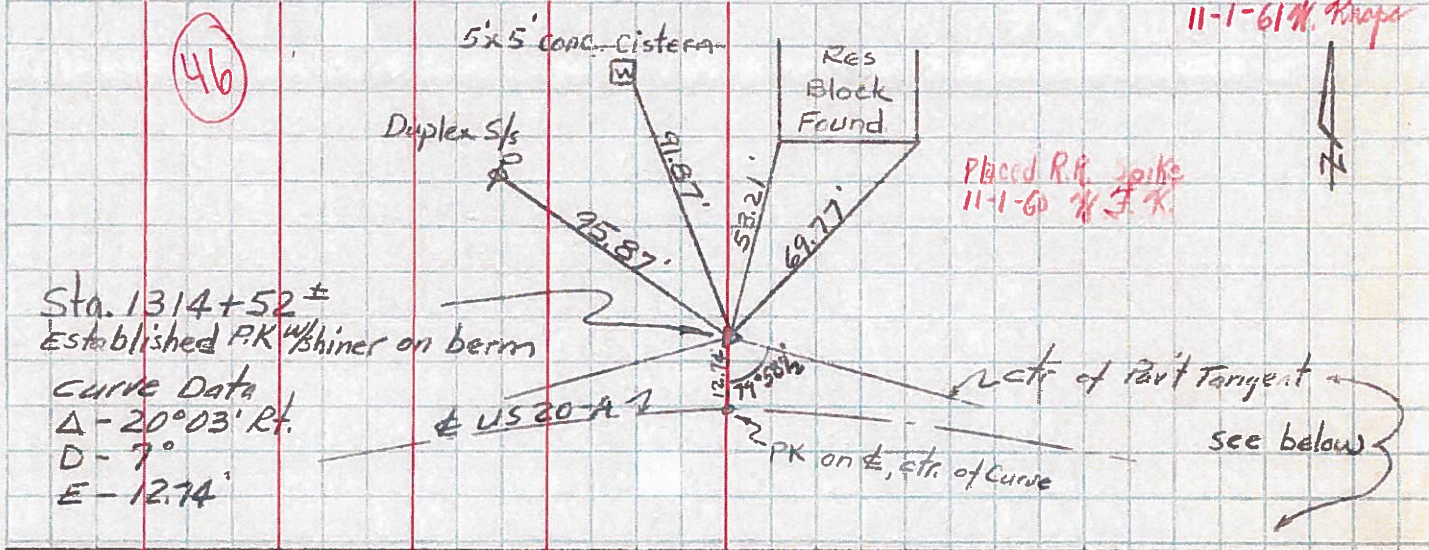 11-1-61 W. Knapp
46
5'x5' conc. Cistern
W
Res
Block
Found
Duplex S/s
91.87'
53.21'
69.77'
95.87'
Placed R.R. Spike
11-1-60 W.F.K.
N
Sta. 1314+52 ±
Established P.K w/shiner on berm
Curve Data
Δ - 20°03' Rt.
D - 7°
E - 12.74'
12.74'
79°58½'
℄ US 20-A
ctr of Pav't Tangent
see below
PK on ℄, ctr. of Curve